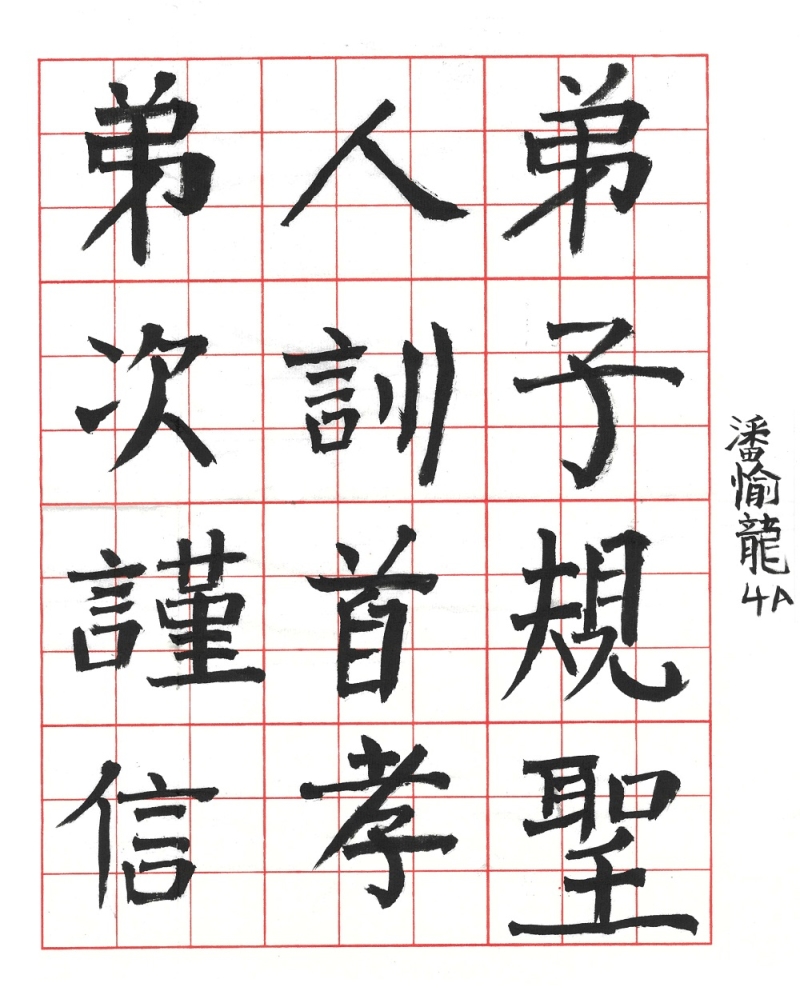 弟子規聖
人訓首孝
弟次謹信
潘愉龍
4A